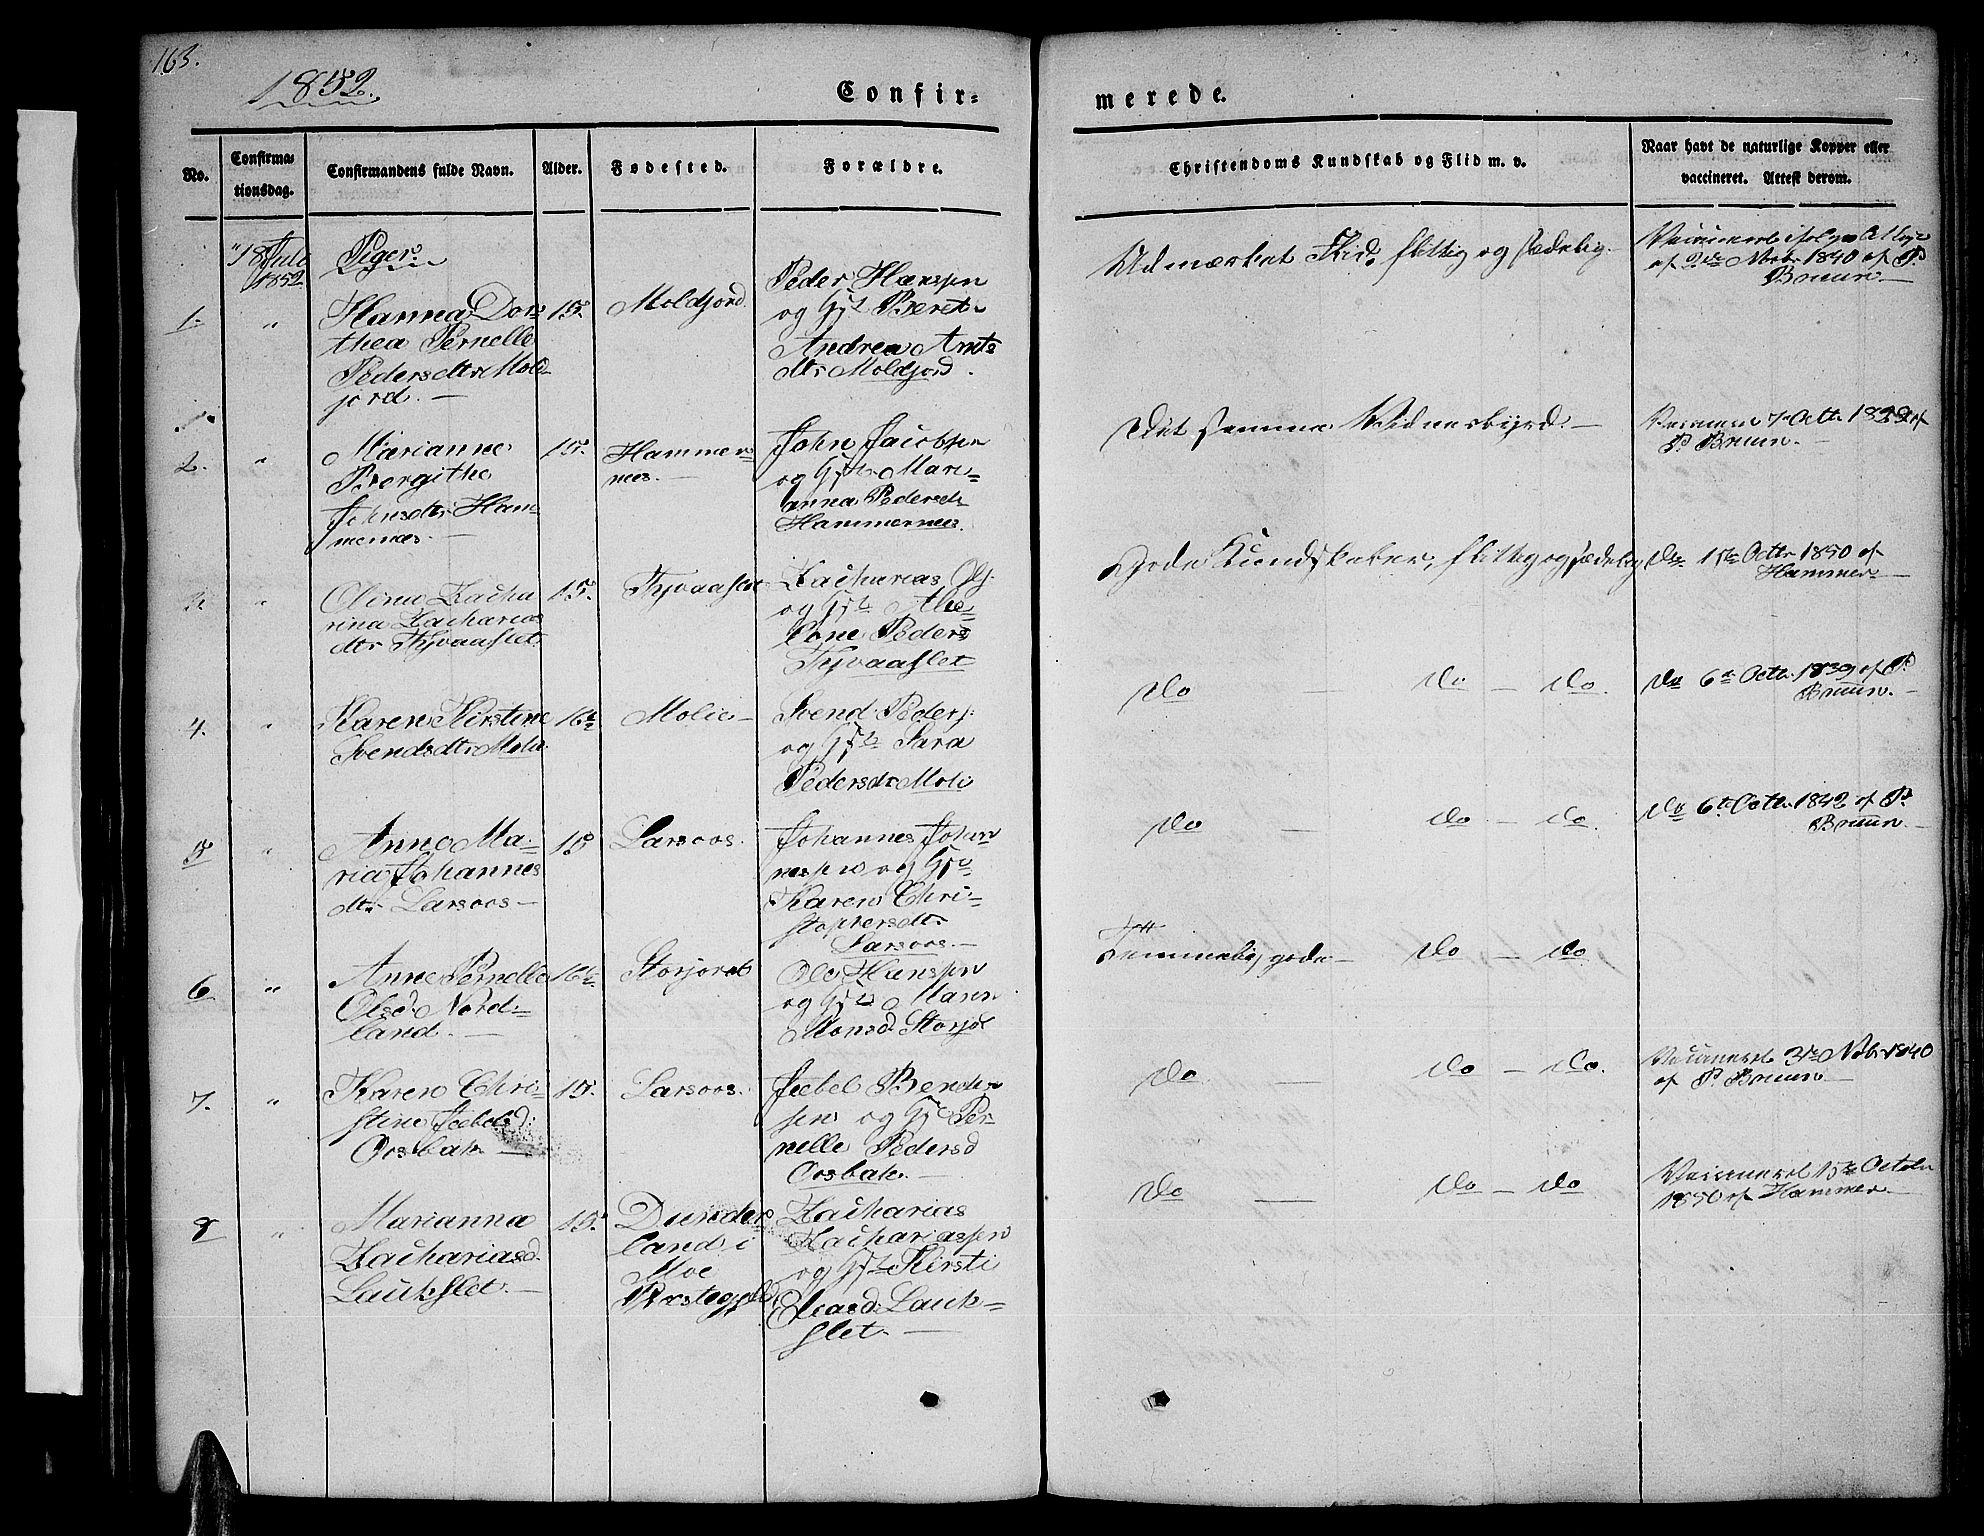 163.
1852.
Confir=
merede.
No.
Confirma=
tionsdag.
Confirmandens fulde Navn.
Alder.
Fødested.
Forældre.
Christendoms Kundskab og Flid m. v.
Naar havt de naturlige Kopper eller
vaccineret. Attest derom.
18 Juli
1852
Piger
1.
"
Hanna Doro
thea Pernelle
Pedersdtr Mold=
jord.
15.
Moldjord
Peder Hanssen
og Hst Beret
Andrea Arnts
dtr Moldjord.
Udmærket Flid, flittig og sædelig.
Vaccineret ifølge Attest
af 2de Novbr 1840 af P.
Bruun.
2.
"
Marianne
Bergithe
Johnsdtr Ham=
mernæs.
15.
Hammer=
næs.
John Jacobsen
og Hst Mari=
anna Pedersdtr
Hammernæs.
Det samme Vidnesbyrd.
7 Octbr
P. Bruun.
3.
"
Oline Zacha
rina Zacharias
dtr Thjvaaslet.
15.
Thjvaaslet
Zacharias Ols.
og Hst
Peders
Thjvaaslet
Gode Kundskaber, flittig og sædelig
Do 15de Octbr 1850 af
Hammer
4.
"
Karen Kirstine
Svendsdtr Molid.
16½
Molid
Svend Peders.
og Hst Sara
Pedersdtr Moli
Do — Do — Do.
Do 6te Octbr. 1839 af P.
Bruun.
5
"
Anne Ma=
ria Johannes
dtr Larsoos
15
Larsoos.
Johannes Johan
nesen og Hst
Karen Chri=
stophersdtr
Larsoos.
Do — Do — Do.
Do 6te Octbr 1842 af P.
Bruun
6
"
Anne Pernelle
Olsd. Nord=
land.
16½
Storjord
Ole Hanssen
og Hst Maren
Monsd. Storjo
Temmelig gode — Do — Do
7.
"
Karen Chri=
stine Jeebelsd.
Oosbak
15.
Larsoos.
Jeebel Bendt=
sen og Hst Per=
nelle Pedersd
Oosbak.
Do — Do — Do.
Vaccineret 3die Novbr 1840
af P. Bruun
8
"
Marianna
Zachariasd.
Laukslet.
15.
Dunder
land i
Moe
Præstegjeld
Zacharias
Zachariassen
og Hst Kirsti
Eliasd. Lauk=
slet.
Do — Do — Do
Vaccineret 15de Octobr
1850 af Hammer